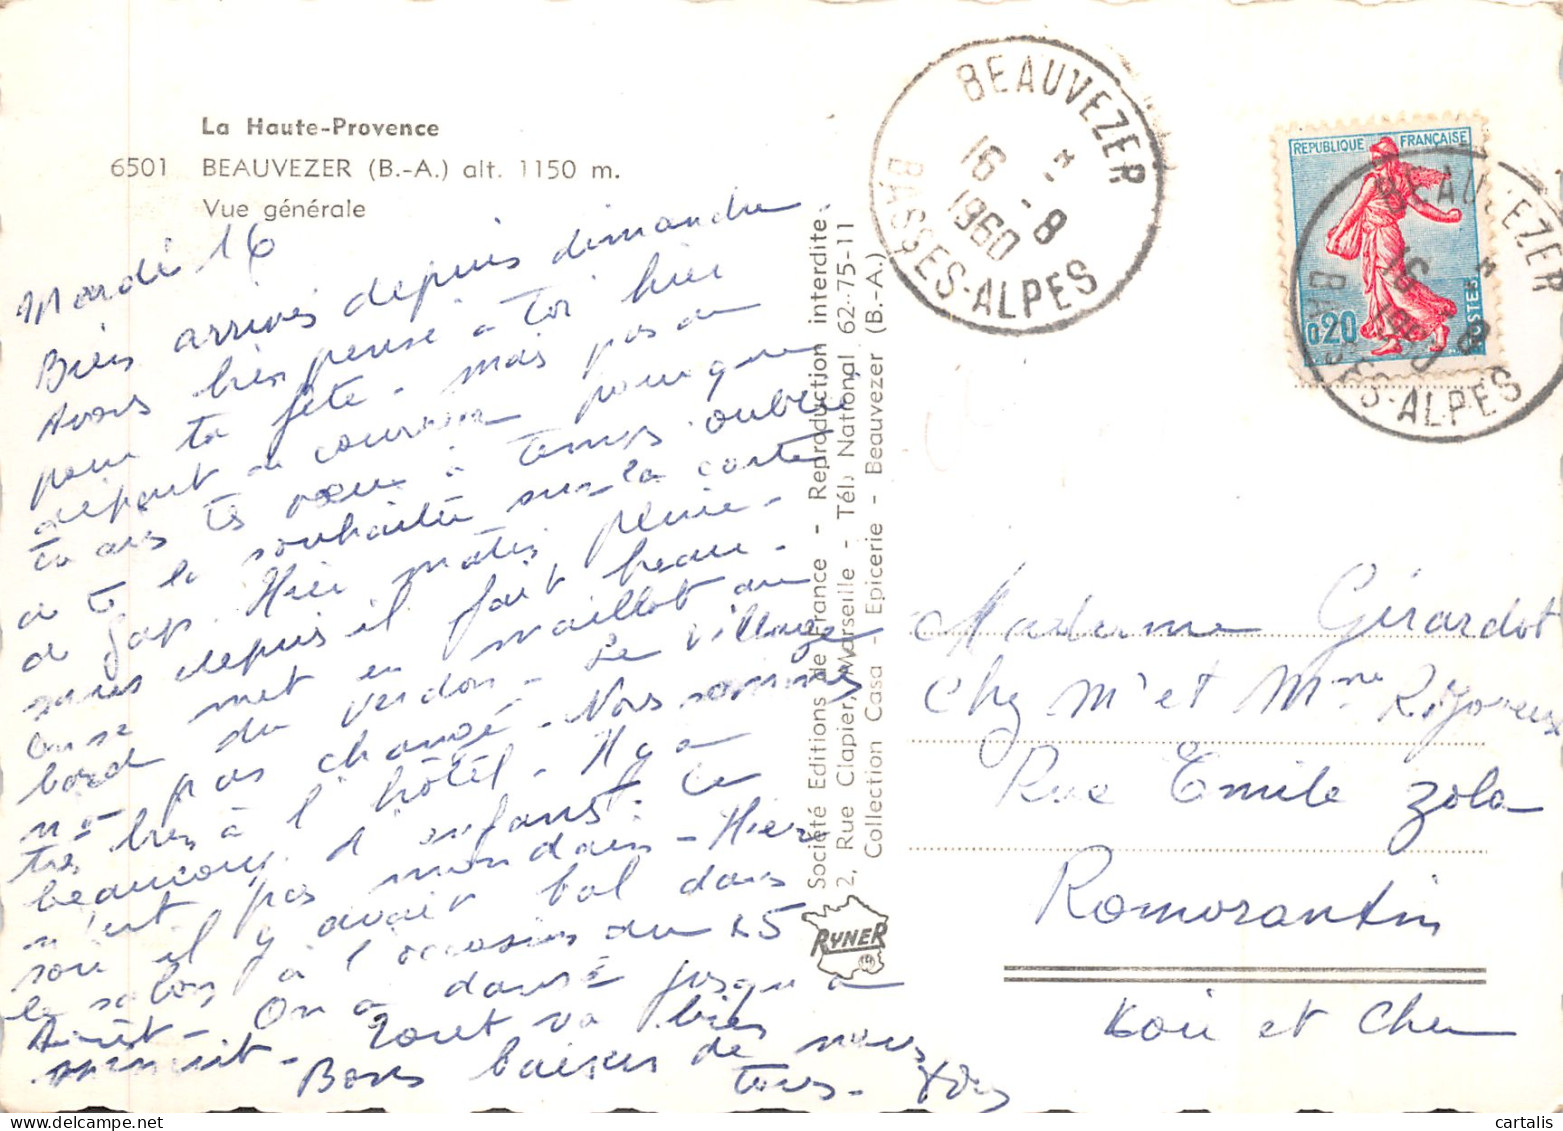 La Haute-Provence
6501 BEAUVEZER (B.-A.) alt. 1150 m.
Vue générale
Mardi 16
Bien arrivés depuis dimanche.
Avons bien pensé à toi hier
pour ta fête - mais pas de
départ de courrier pour que
tu aies tes vœux à temps. oublié
de te le souhaiter sur la carte
de Gap. Hier matin pluie -
mais depuis il fait beau -
On se met en maillot au
bord du Verdon - Le village
n'a pas changé - Nous sommes
très bien à l'hôtel - Il y a
beaucoup d'enfants. Ce
n'est pas mondain - Hier
soir il y avait bal dans
le salon à l'occasion du 15
Août - On a dansé jusqu'à
minuit - Tout va bien
Bons baisers de nous
tous -
Société Editions de France - Reproduction interdite.
2, Rue Clapier, Marseille - Tél. National 62-75-11
Collection Casa - Epicerie - Beauvezer (B.-A.)
RYNER
BEAUVEZER
16 - 8
1960
BASSES-ALPES
REPUBLIQUE FRANÇAISE
0,20
POSTES
BEAUVEZER
16 - 8
1960
BASSES-ALPES
Madame Gérardot
Chez Mr et Mme Rigoreux
Rue Emile Zola
Romorantin
Loir et Cher
cartalis